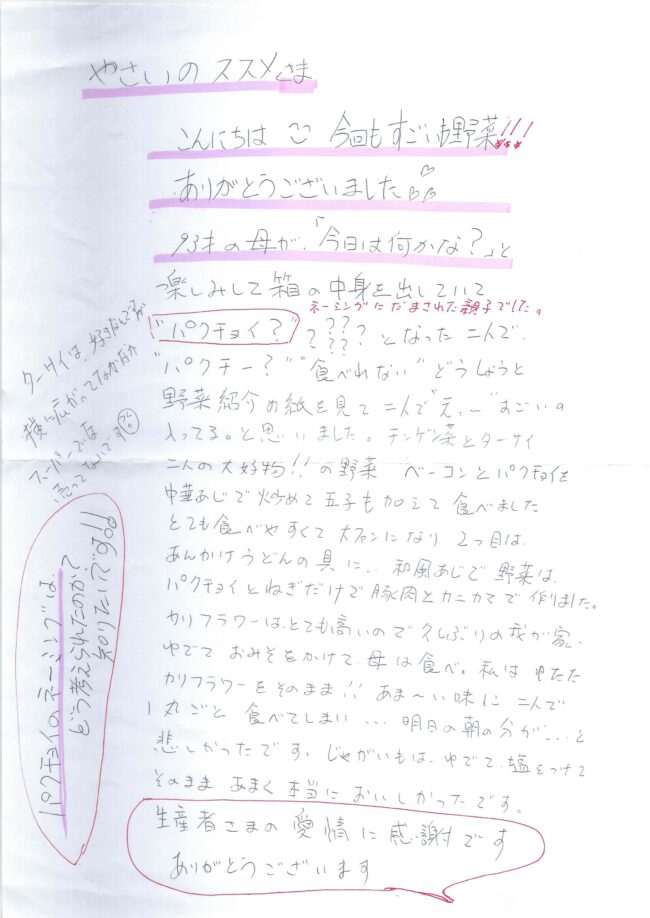 やさいのススメさま
こんにちは 今回もすごい野菜!!!
ありがとうございました
93才の母が、「今日は何かな?」と
楽しみして箱の中身を出していて
ネーミングにだまされた親子でした。
"パクチョイ?" ? ??? ??? ? となった二人で、
"パクチー?" "食べれない" どうしようと
野菜紹介の紙を見て二人で"えっ~"すごいの
入ってる。と思いました。チンゲン菜とターサイ
二人の大好物!!の野菜 ベーコンとパクチョイを
中華あじで炒めて玉子も加えて食べました
とても食べやすくて大ファンになり 2つ目は、
あんかけうどんの具に... 和風あじで野菜は、
パクチョイとねぎだけで豚肉とカニカマで作りました。
カリフラワーは、とても高いので久しぶりの我が家、
ゆでて おみそをかけて、母は食べ。私は ゆでた
カリフラワーをそのまま!! あま~い味に 二人で
1丸ごと 食べてしまい... 明日の朝の分が...と
悲しかったです、じゃがいもは、ゆでて、塩をつけて
そのまま あまく 本当に おいしかったです。
生産者さまの愛情に感謝です
ありがとうございます
ターサイは、好きなんですが
横に広がってて なかなか
スーパーでは、
売ってないです
パクチョイのネーミングは、
どう考えられたのかで
知りたいです!!